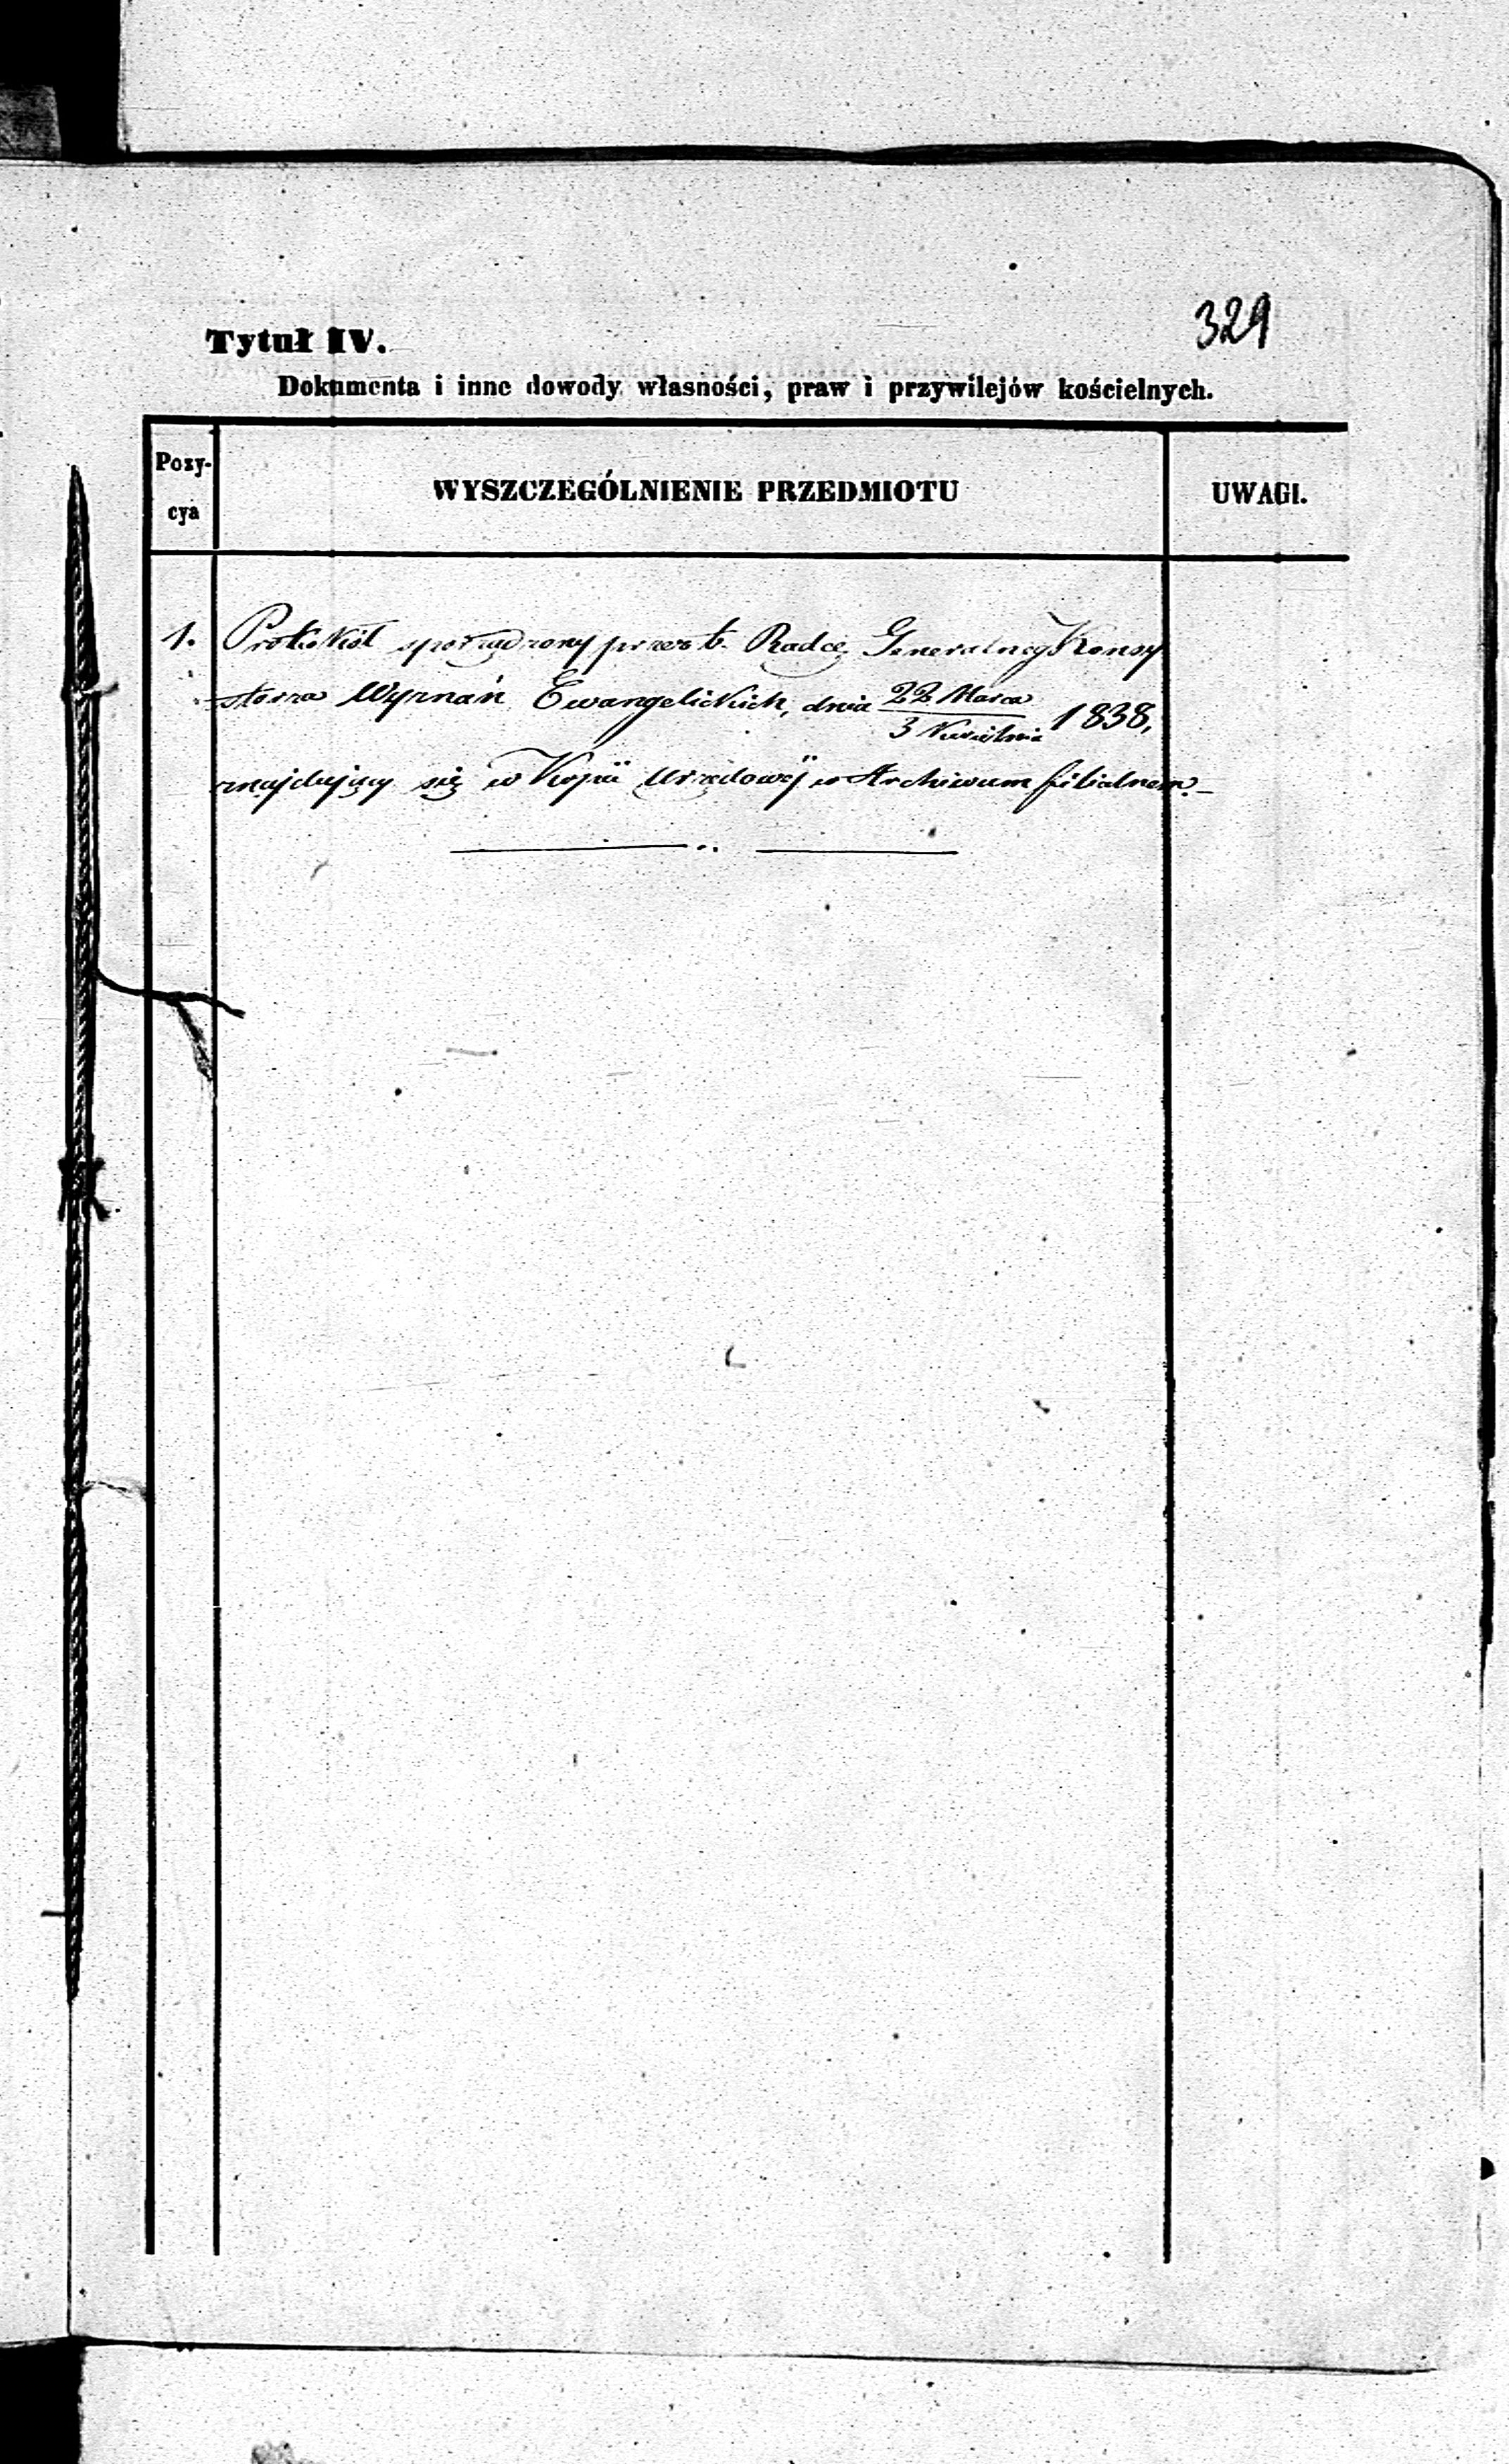 329
Tytuł IV.
Dokumenta i inne dowody własności, praw i przywilejów kościelnych.
Pozy-
cya
WYSZCZEGÓLNIENIE PRZEDMIOTU
UWAGI.
1. Protokół sporządzony przez b. Radcę Generalnego Konsy
storza Wyznań Ewangelickich, dnia 22 Marca / 3 Kwietnia 1838,
znajdujący się w Kopii Urzędowéj w Archiwum filialnem.